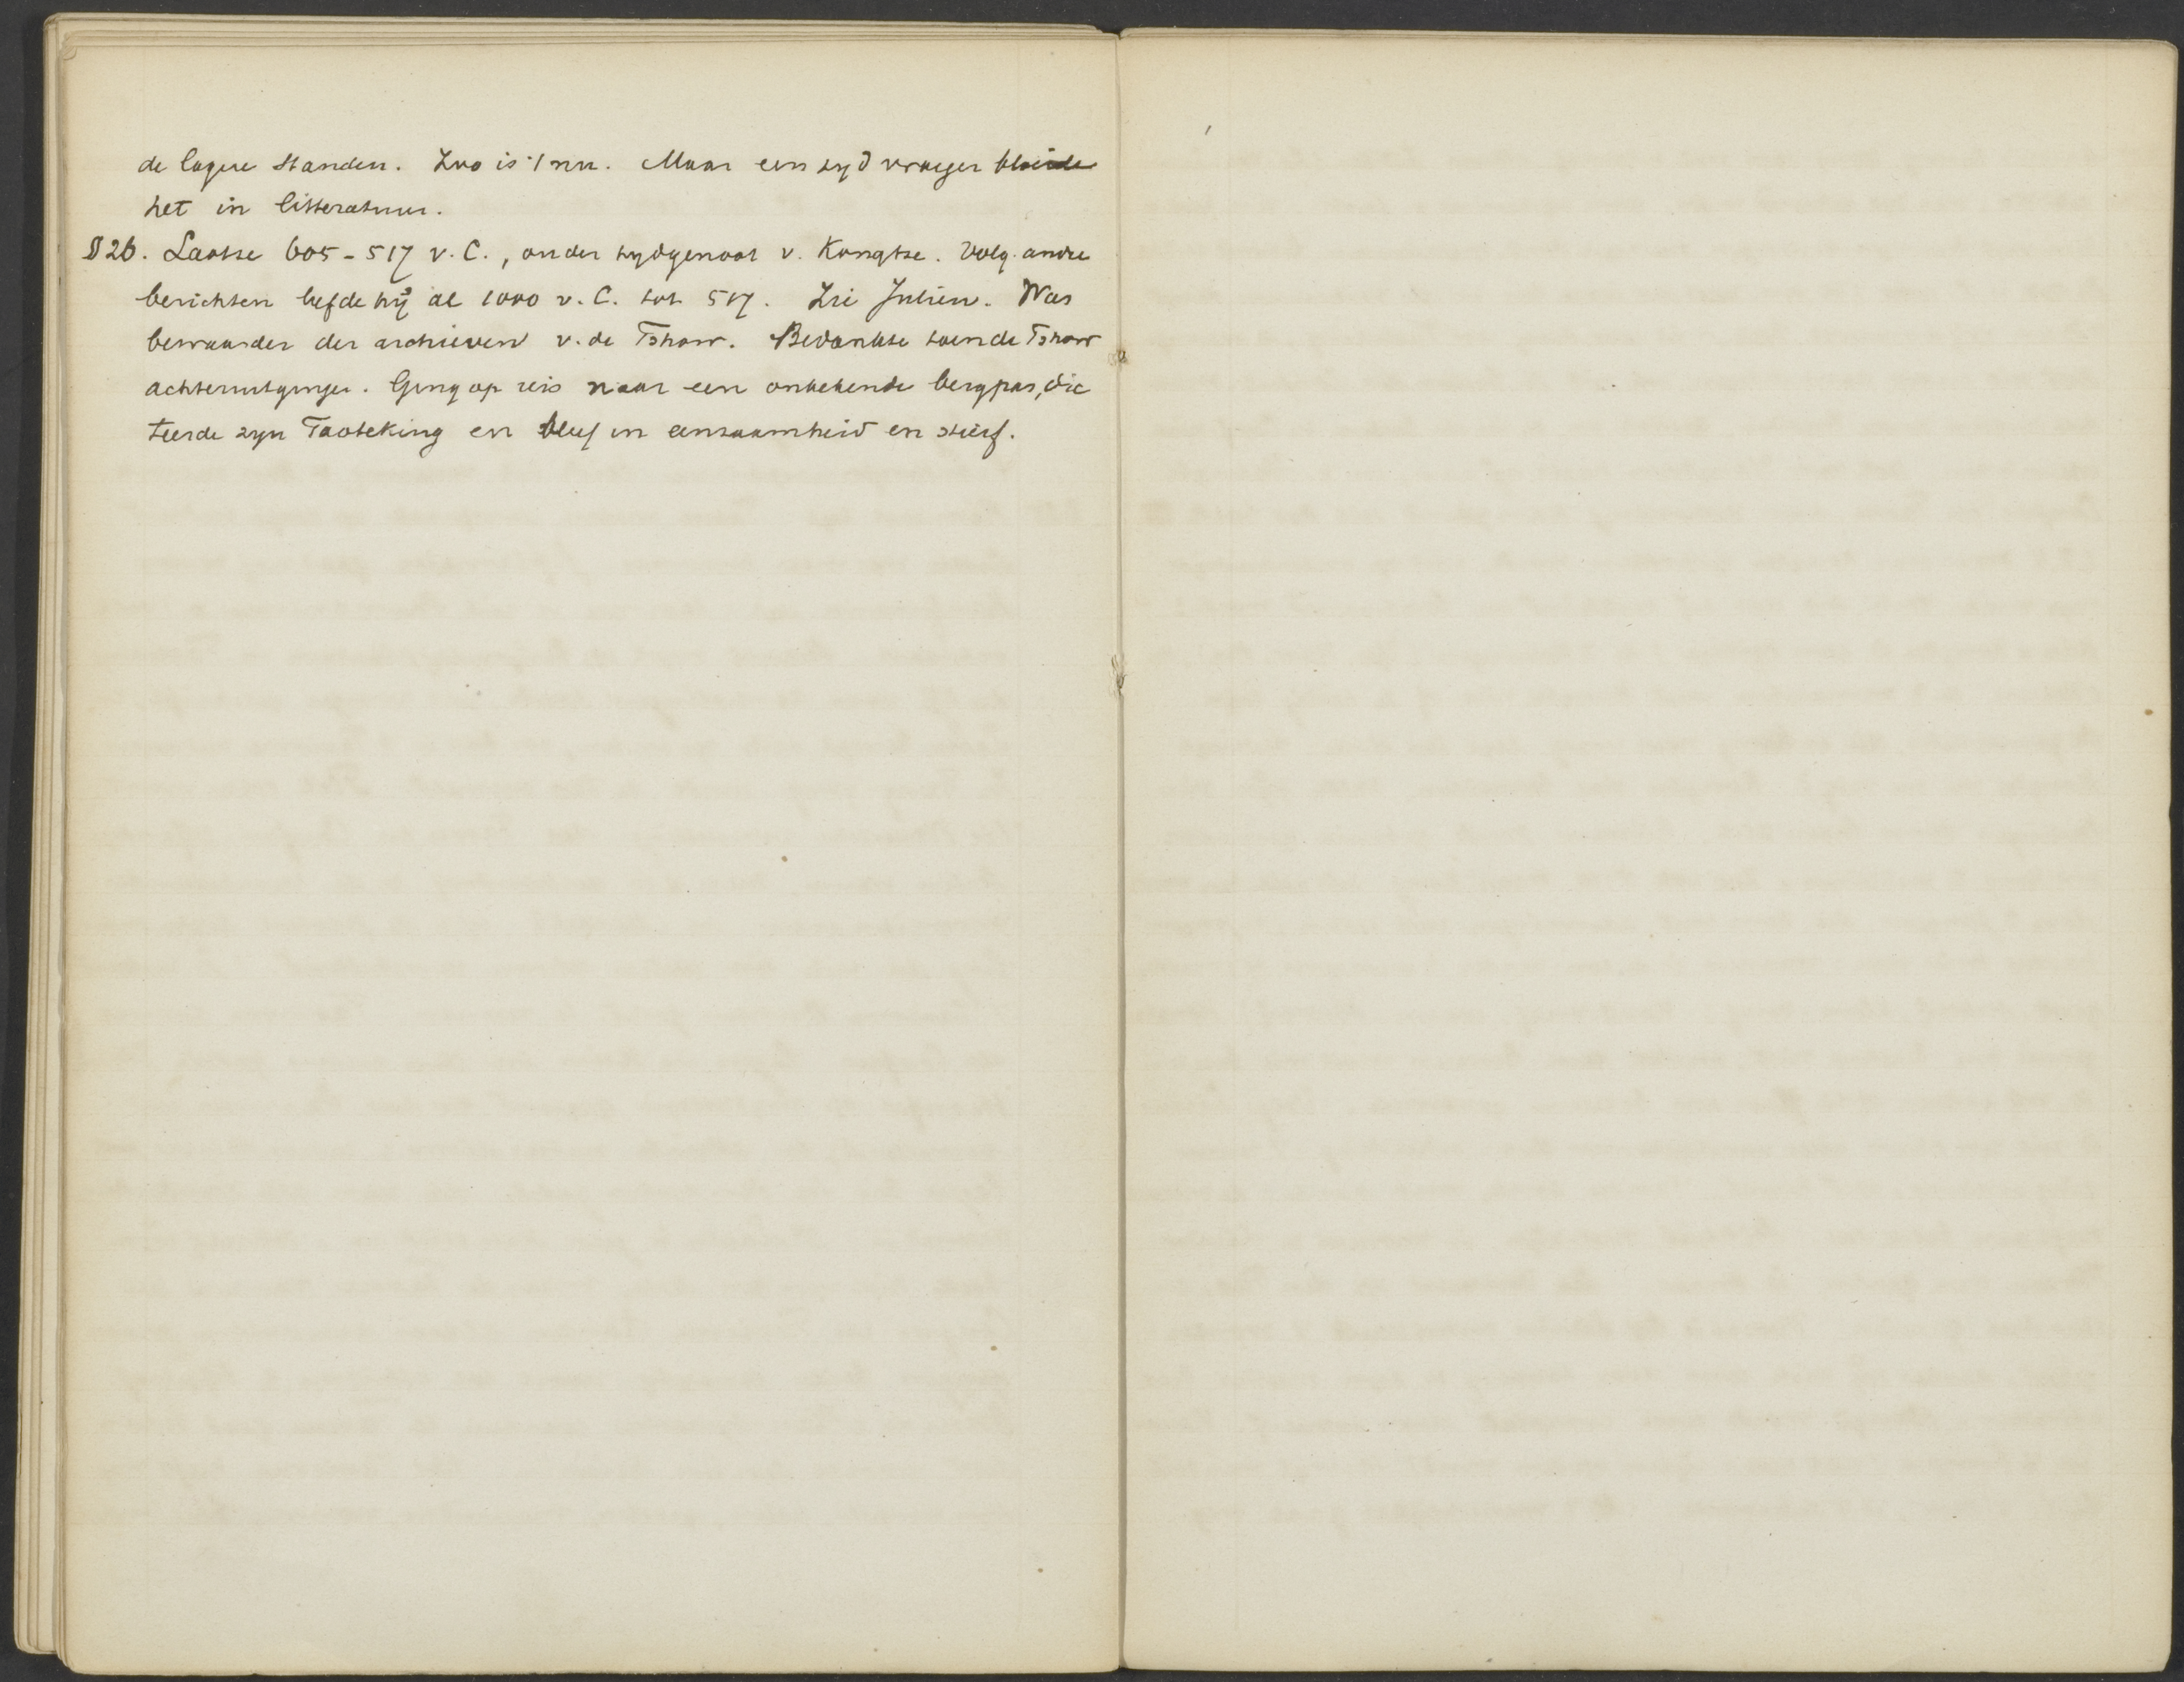 de lagere standen. Zoo is 't nu. Maar een tyd vroeger bloeide
het in litteratuur.
§ 26. Laotse 605 - 517 v. C., ouder tydgenoot v. Kongtse. Volg. andre
berichten leefde hij al 1000 v. C. tot 517. Zie Julien. Was
bewaarder der archieven v. de Tshow. Bedankte toen de Tshow
achteruitgingen. Ging op reis naar een onbekende bergpas, dic
teerde zyn Taoteking en bleef in eenzaamheid en stierf.